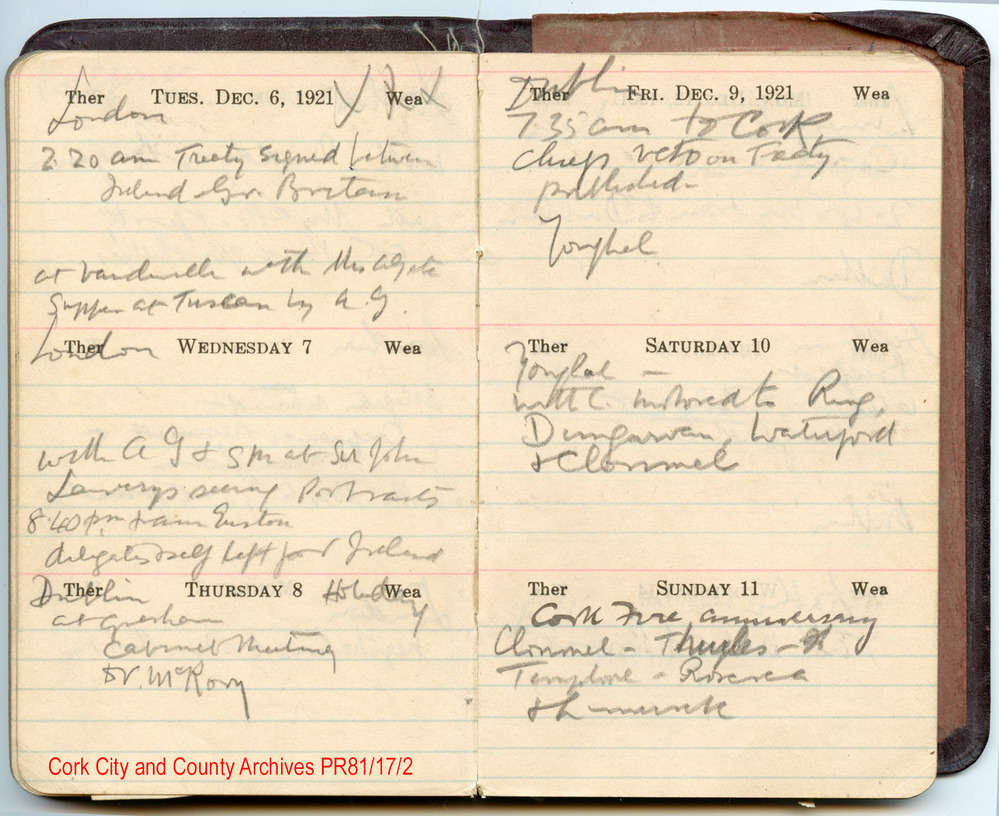 Ther TUES. DEC. 6, 1921 Wea
London
2.20 am Treaty signed between
Ireland & Gr. Britain
at Vaudeville with Miss
Supper at Tuscan by A. G.
Ther WEDNESDAY 7 Wea
London
with A G & SM at Sir John
Laverys seeing Portraits
8 40 pm train Euston
delegates & self left for Ireland
Ther THURSDAY 8 Wea
Dublin Holiday
at Gresham
Cabinet Meeting
Dr. McRory
Ther FRI. DEC. 9, 1921 Wea
Dublin
7.35 am to Cork
chiefs veto on Treaty
published.
Youghal
Ther SATURDAY 10 Wea
Youghal
with C. motored to Ring,
Dungarvan, Waterford
& Clonmel
Ther SUNDAY 11 Wea
Cork Fire anniversary
Clonmel - Thurles -
Templemore - Roscrea
& Limerick
Cork City and County Archives PR81/17/2